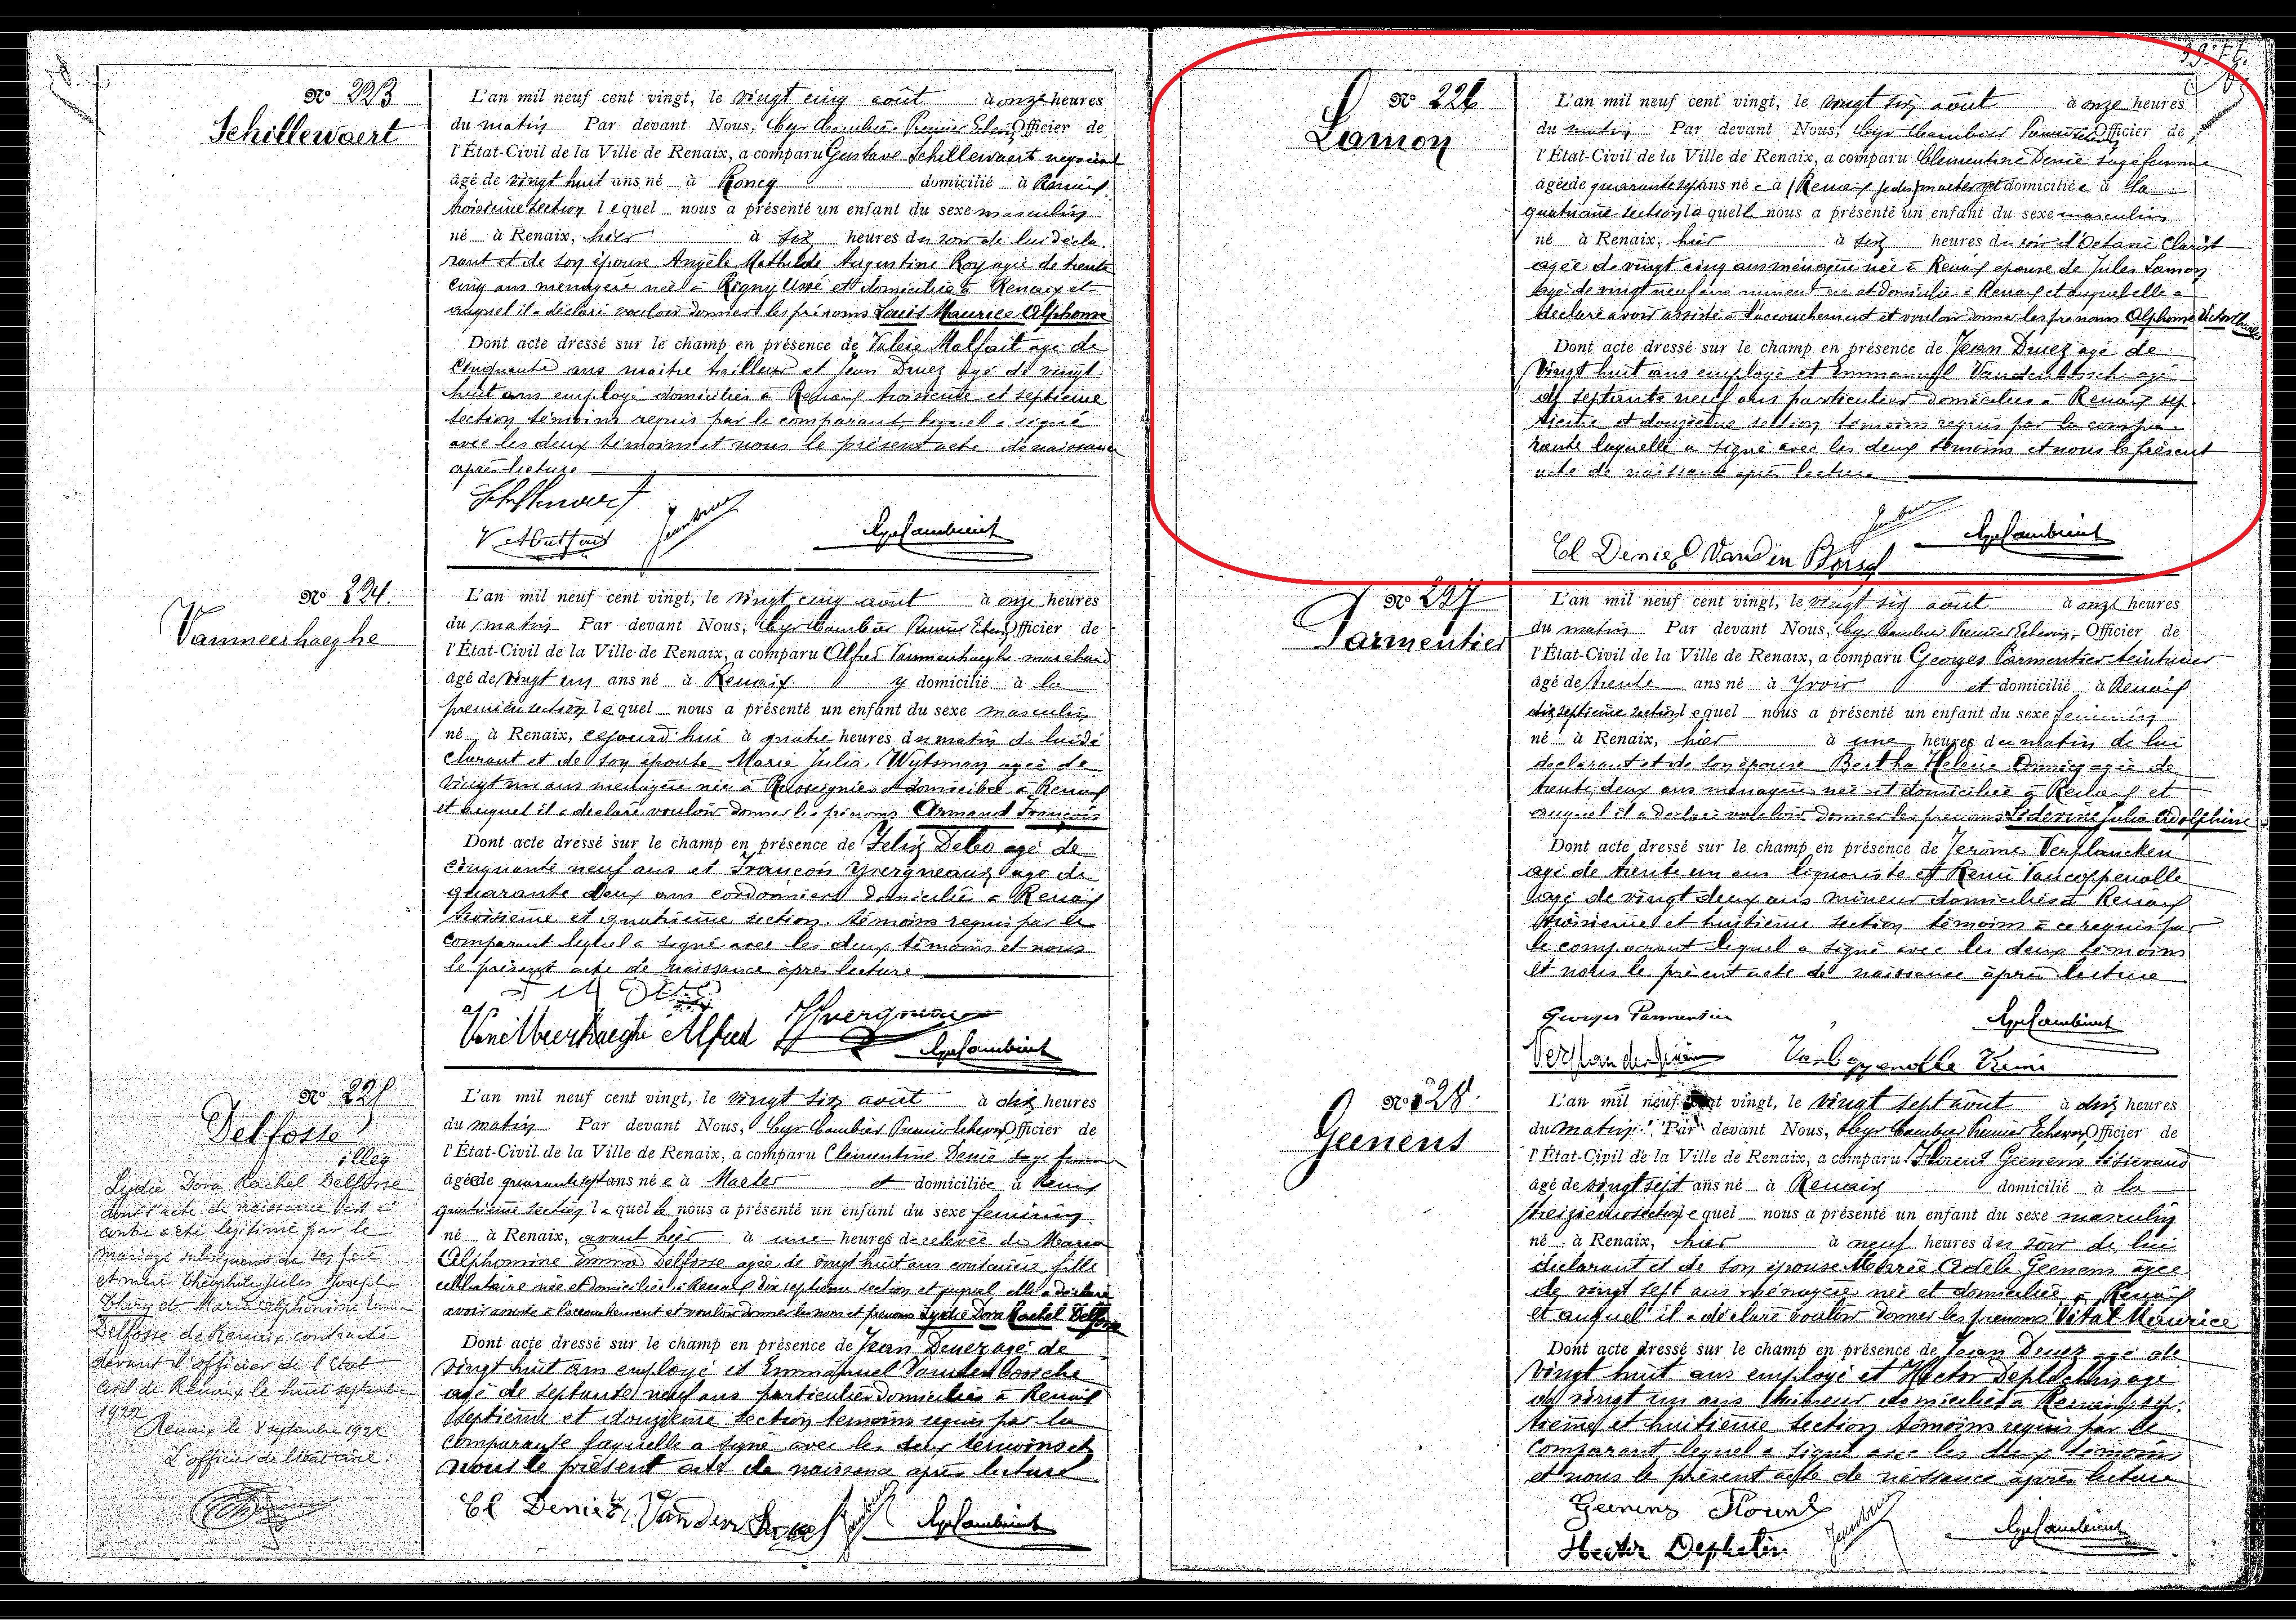 Nº 223
Schillewaert
L'an mil neuf cent vingt, le vingt cinq août à onze heures
du matin Par devant Nous, Cyr Cambier Premier Echevin Officier de
l'État-Civil de la Ville de Renaix, a comparu Gustave Schillewaert negociant
âgé de vingt huit ans né à Roncq domicilié à Renaix
troisième section lequel nous a présenté un enfant du sexe masculin
né à Renaix, hier à six heures du soir de lui décla-
rant et de son épouse Angèle Mathilde Augustine Roy agée de trente
cinq ans menagère née à Rigny Ussé et domiciliée à Renaix et
auquel il a déclaré vouloir donner les prénoms Louis Maurice Alphonse
Dont acte dressé sur le champ en présence de Valère Malfait agé de
cinquante ans maître tailleur et Jean Druez agé de vingt
huit ans employé domiciliés à Renaix troisième et septième
section témoins requis par le comparant, lequel a signé
avec les deux témoins et nous le présent acte de naissance
après lecture
Schillewaert
V. Malfait Jean Druez Cyr Cambier
Nº 224.
Vanmeerhaeghe
L'an mil neuf cent vingt, le vingt cinq août à onze heures
du matin Par devant Nous, Cyr Cambier Premier Echevin Officier de
l'État-Civil de la Ville de Renaix, a comparu Alfred Vanmeerhaeghe marchand
âgé de vingt un ans né à Renaix y domicilié à la
première section lequel nous a présenté un enfant du sexe masculin
né à Renaix, cejourd'hui à quatre heures du matin de lui dé
clarant et de son épouse Marie Julia Wytsman agée de
vingt un ans menagère née à Russeignies et domiciliée à Renaix
et auquel il a déclaré vouloir donner les prénoms Armand François
Dont acte dressé sur le champ en présence de Felix agé de
cinquante neuf ans et François Yvergneaux agé de
quarante deux ans cordonniers domiciliés à Renaix
troisième et quatrième section témoins requis par le
comparant lequel a signé avec les deux témoins et nous
le présent acte de naissance après lecture
Van Meerhaeghe Alfred Yvergneaux Cyr Cambier
Nº 225
Delfosse
illég.
Lydie Dora Rachel Delfosse
dont l'acte de naissance est ci
contre a été légitimé par le
mariage subséquent de ses père
et mère Théophile Jules Joseph
Thiry et Maria Alphonsine Emma
Delfosse de Renaix contracté
devant l'officier de l'Etat
Civil de Renaix le huit septembre
1922
Renaix le 8 septembre 1922
L'officier de l'état civil:
L'an mil neuf cent vingt, le vingt six août à dix heures
du matin Par devant Nous, Cyr Cambier Premier Echevin Officier de
l'État-Civil de la Ville de Renaix, a comparu Clémentine Denie sage femme
âgée de quarante sept ans née à Maeter et domiciliée à Renaix
quatrième section laquelle nous a présenté un enfant du sexe feminin
né à Renaix, avant hier à une heures de relevée de Maria
Alphonsine Emma Delfosse agée de vingt huit ans couturière fille
célibataire née et domiciliée à Renaix dix septième section et auquel elle a déclaré
avoir assisté à l'accouchement et vouloir donner les nom et prénoms Lydie Dora Rachel Delfosse
Dont acte dressé sur le champ en présence de Jean Druez agé de
vingt huit ans employé et Emmanuel Vandenbossche
agé de septante neuf ans particulier domiciliés à Renaix
septième et douzième section témoins requis par la
comparante laquelle a signé avec les deux témoins et
nous le présent acte de naissance après lecture
Cl Denie E. Vanden Bossche Jean Druez Cyr Cambier
Nº 226
Lamon
L'an mil neuf cent vingt, le vingt six août à onze heures
du matin Par devant Nous, Cyr Cambier Premier Echevin Officier de
l'État-Civil de la Ville de Renaix, a comparu Clementine Denie sage femme
âgée de quarante sept ans née à Maeter et domiciliée à la
quatrième section laquelle nous a présenté un enfant du sexe masculin
né à Renaix, hier à six heures du soir d'Octavie Clarist
agée de vingt cinq ans ménagère née à Renaix épouse de Jules Lamon
agé de vingt neuf ans mineur né et domicilié à Renaix et auquel elle a
déclaré avoir assisté à l'accouchement et vouloir donner les prénoms Alphonse Victor Charles
Dont acte dressé sur le champ en présence de Jean Druez agé de
vingt huit ans employé et Emmanuel Vandenbossche agé
de septante neuf ans particulier domiciliés à Renaix sep-
tième et douzième section témoins requis par la compa-
rante laquelle a signé avec les deux témoins et nous le présent
acte de naissance après lecture
Jean Druez Cyr Cambier
Cl Denie E Vanden Bossch
Nº 227
Parmentier
L'an mil neuf cent vingt, le vingt six août à onze heures
du matin Par devant Nous, Cyr Cambier Premier Echevin, Officier de
l'État-Civil de la Ville de Renaix, a comparu Georges Parmentier teinturier
âgé de trente ans né à Yvoir et domicilié à Renaix
dix septième section lequel nous a présenté un enfant du sexe feminin
né à Renaix, hier à une heures du matin de lui
déclarant et de son épouse Bertha Hélène agée de
trente deux ans ménagère née et domiciliée à Renaix et
auquel il a déclaré vouloir donner les prénoms Julia Adolphine
Dont acte dressé sur le champ en présence de Jérôme Verplancken
agé de trente un ans liquoriste et Remi Vancoppenolle
agé de vingt deux ans mineur domiciliés à Renaix
troisième et huitième section témoins à ce requis par
le comparant lequel a signé avec les deux témoins
et nous le présent acte de naissance après lecture
Georges Parmentier Cyr Cambier
Vancoppenolle Remi
Nº 228.
Geenens
L'an mil neuf cent vingt, le vingt sept août à dix heures
du matin Par devant Nous, Cyr Cambier Premier Echevin Officier de
l'État-Civil de la Ville de Renaix, a comparu Florent Geenens tisserand
âgé de vingt sept ans né à Renaix domicilié à la
treizième section lequel nous a présenté un enfant du sexe masculin
né à Renaix, hier à neuf heures du soir de lui
déclarant et de son épouse Marie Adèle Geenens agée
de vingt sept ans ménagère née et domiciliée à Renaix
et auquel il a déclaré vouloir donner les prénoms Vital Maurice
Dont acte dressé sur le champ en présence de Jean Druez agé de
vingt huit ans employé et Hector agé
de vingt un ans domiciliés à Renaix sep-
tième et huitième section témoins requis par le
comparant lequel a signé avec les deux témoins
et nous le présent acte de naissance après lecture
Geenens Florent
Hector Jean Druez Cyr Cambier